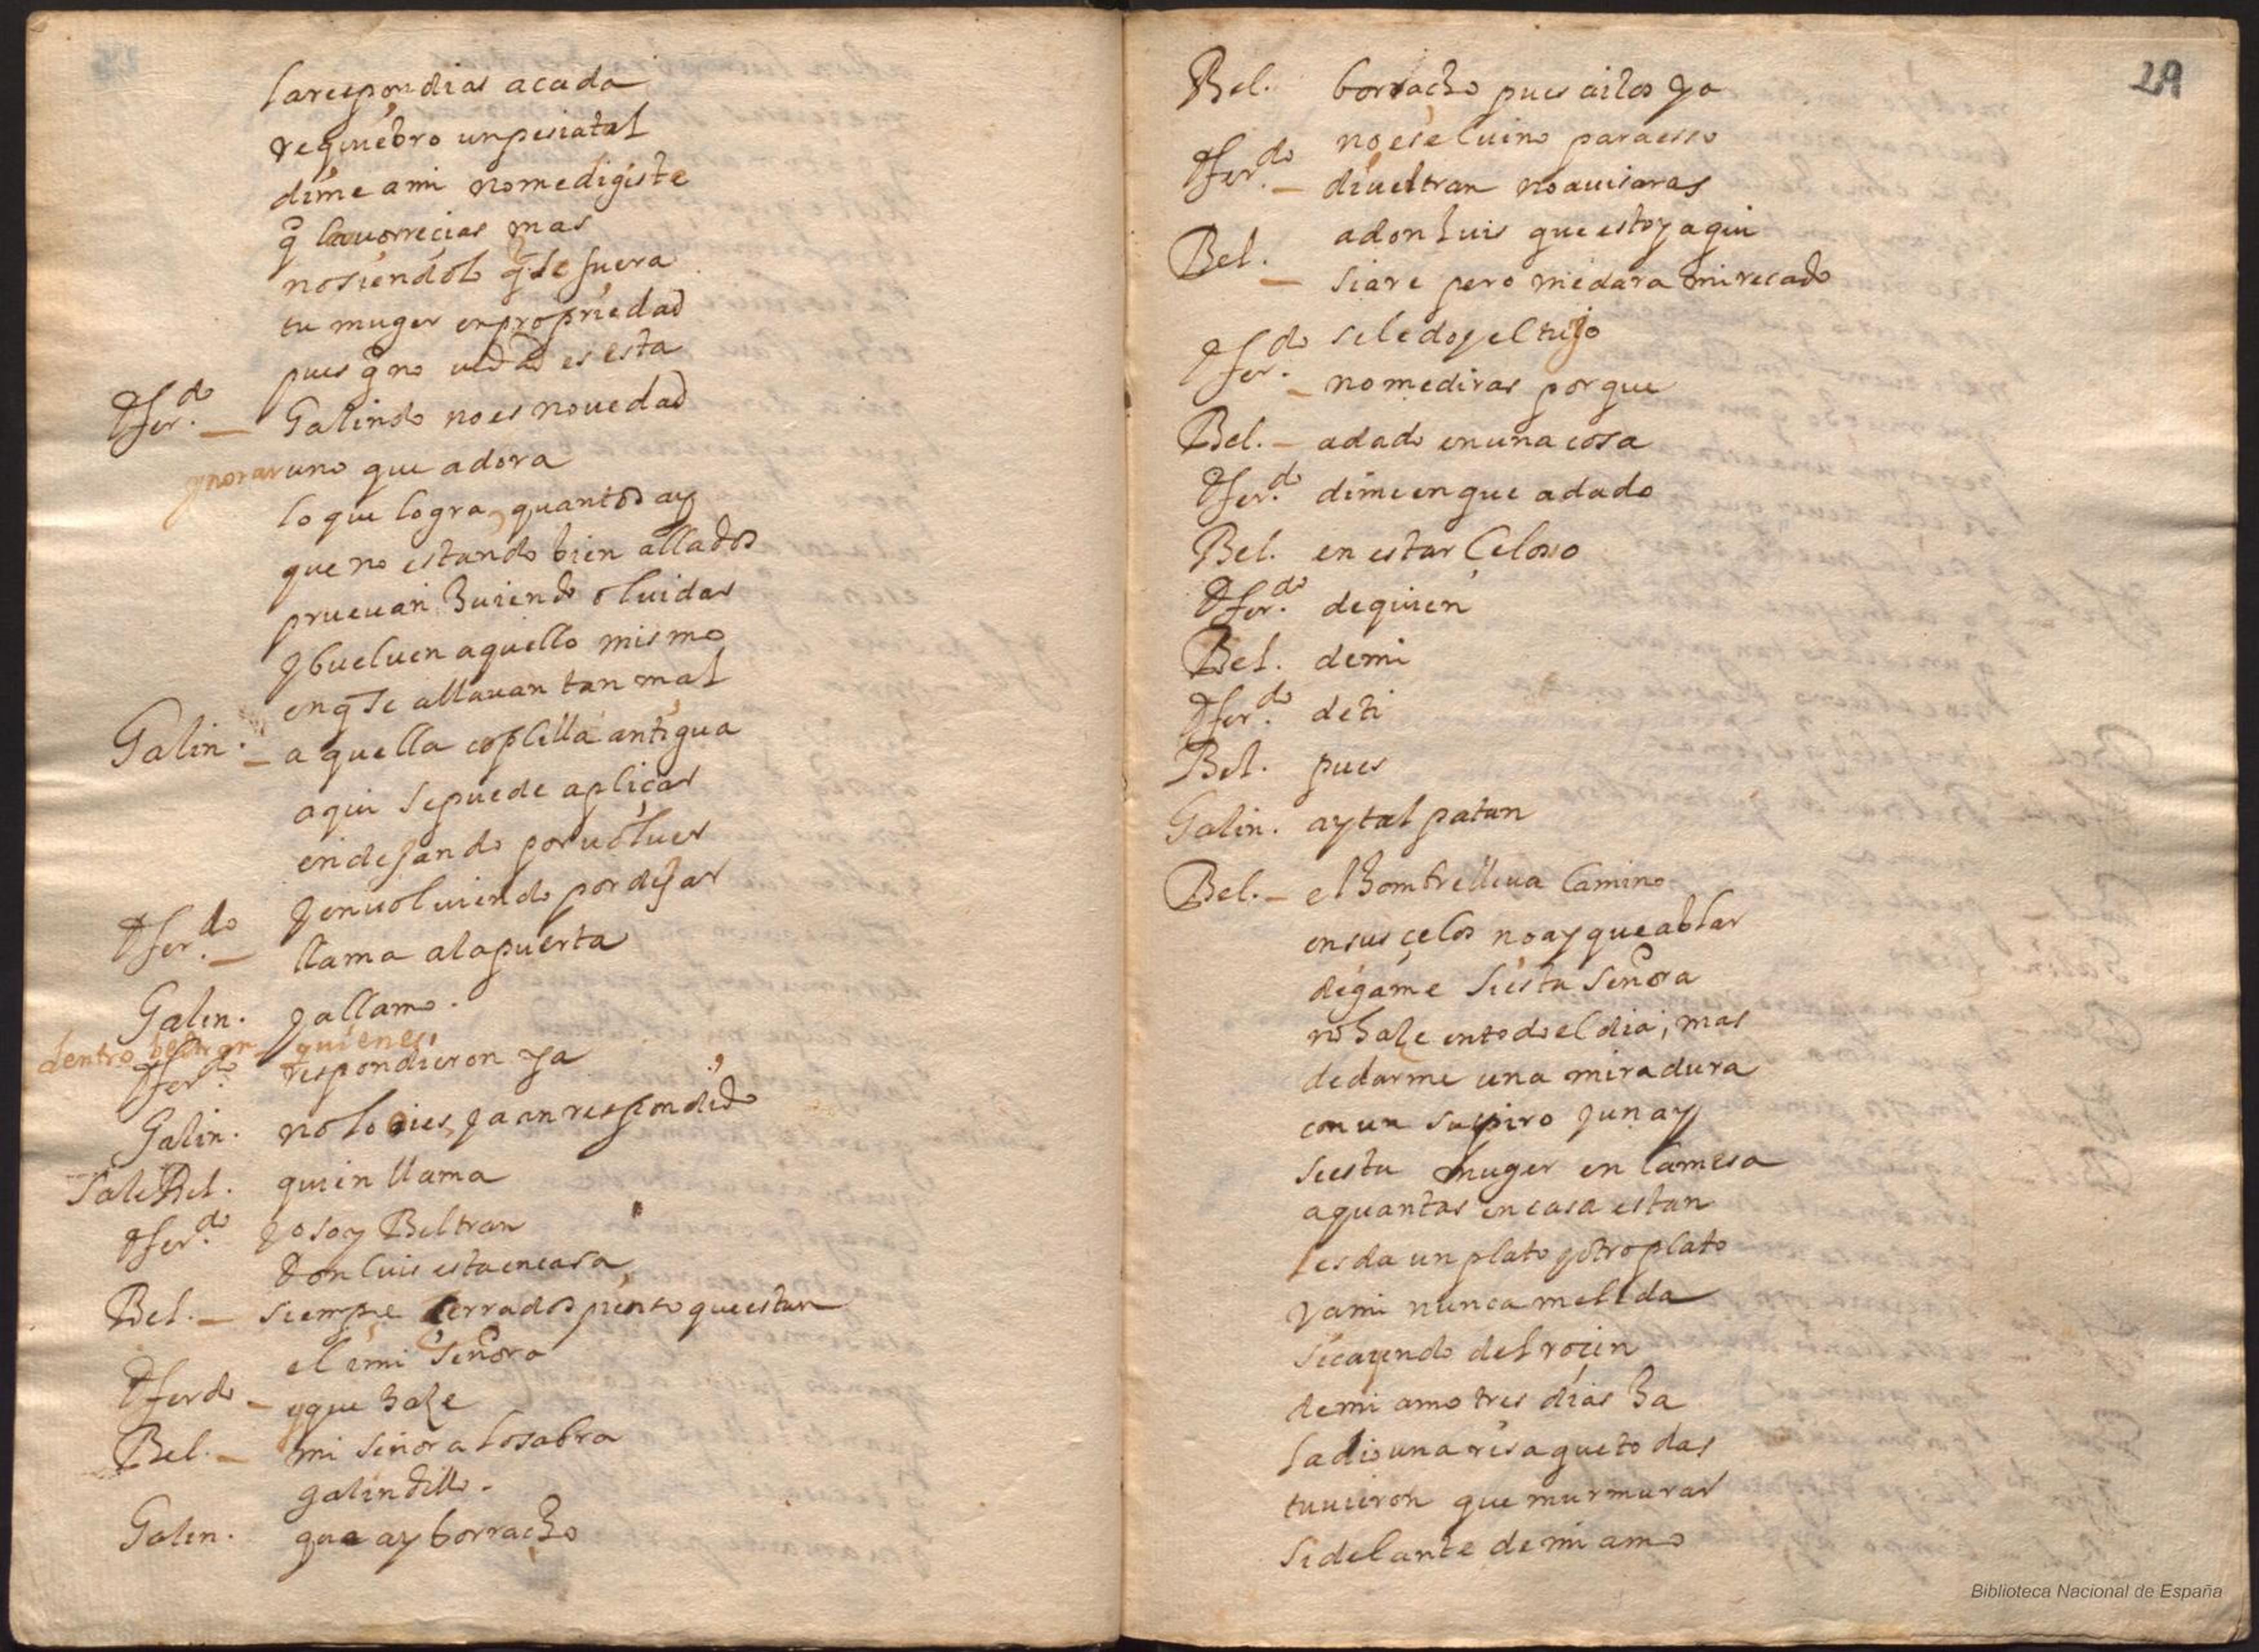 la respondias a cada
requiebro un pesiatal
dime a mi no me digiste
q̃ la auorrecias mas
no siendolo q̃ si fuera
tu muger en propriedad
pues q̃ no uldad es esta
Dferdo. Galindo no es nouedad
ynorar uno que adora
lo que logra, quantos ay
que no estando bien allados
prueuan huiendo oluidar
y bueluen aquello mismo
en q̃ se allauan tan mal
Galin. aquella coplilla antigua
aqui se puede aplicar
en dejando por uoluer
y en uoluiendo por dejar
Dferdo. llama a la puerta
Galin. ya llamo.
dentro beltran quien es
Dferdo. respondieron ya
Galin. no lo oies, ya an respondido
Sale Bel. quien llama
Dferdo. yo soy Beltran
Don luis esta en casa
Bel. siempre cerrados pienso que estan
el i mi señora
Dferdo y que haze
Bel. mi señora lo sabra
galindillo.
Galin. que ay borracho
29
Bel. borracho pues a itos yo
no es el uino para esso
Dferdo. di ueltran no auisaras
a don luis que estoy aqui
Bel. si are pero me dara mi recado
si le doy el tuyo
Dferdo. no me diras por que
Bel. a dado en una cosa
Dferdo. dime en que a dado
Bel. en estar Celoso
Dferdo. de quien
Bel. de mi
Dferdo. de ti
Bel. pues
Galin. ay tal patan
Bel. el hombre lleua Camino
en sus celos no ay que ablar
digame si esta señora
no haze en todo el dia, mas
de darme una miradura
con un suspiro y un ay
si esta muger en la mesa
a quantas en casa estan
les da un plato y otro plato
y a mi nunca me le da
si cayendo del rocin
de mi amo tres dias ha
la dio una risa que todas
tuuieron que murmurar
si delante de mi amo
Biblioteca Nacional de España